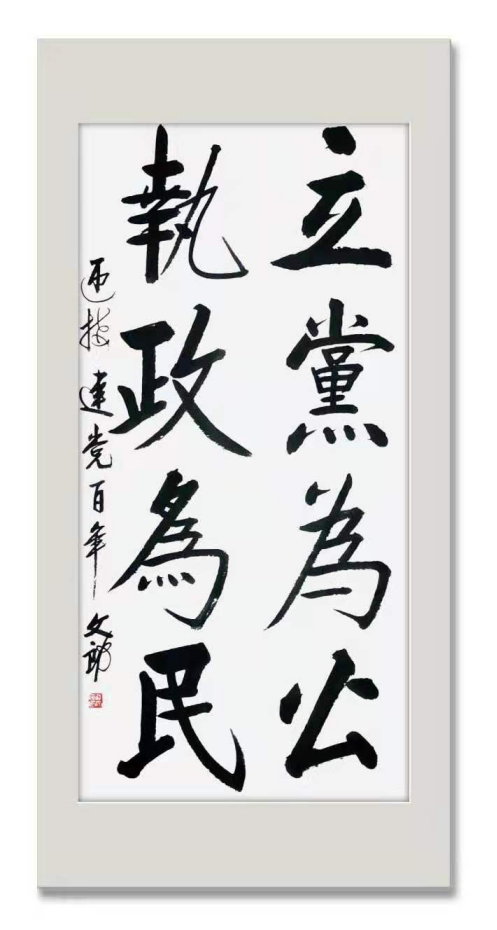 立黨為公
執政為民
迎接建党百年 文